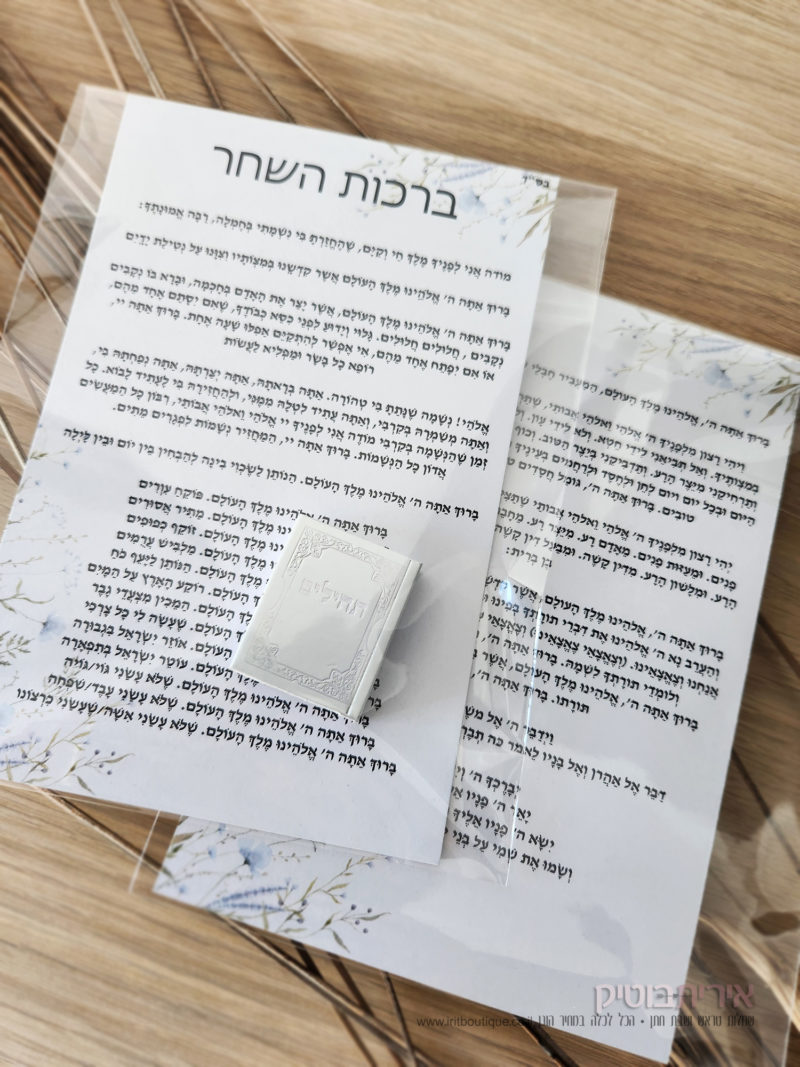 בס"ד
ברכות השחר
מוֹדֶה אֲנִי לְפָנֶיךָ מֶלֶךְ חַי וְקַיָּם, שֶׁהֶחֱזַרְתָּ בִּי נִשְׁמָתִי בְּחֶמְלָה, רַבָּה אֱמוּנָתֶךָ:
בָּרוּךְ אַתָּה ה' אֱלֹהֵינוּ מֶלֶךְ הָעוֹלָם אֲשֶׁר קִדְּשָׁנוּ בְּמִצְוֹתָיו וְצִוָּנוּ עַל נְטִילַת יָדַיִם
בָּרוּךְ אַתָּה ה' אֱלֹהֵינוּ מֶלֶךְ הָעוֹלָם, אֲשֶׁר יָצַר אֶת הָאָדָם בְּחָכְמָה, וּבָרָא בוֹ נְקָבִים
נְקָבִים, חֲלוּלִים חֲלוּלִים. גָּלוּי וְיָדוּעַ לִפְנֵי כִסֵּא כְבוֹדֶךָ, שֶׁאִם יִסָּתֵם אֶחָד מֵהֶם,
אוֹ אִם יִפָּתֵחַ אֶחָד מֵהֶם, אִי אֶפְשַׁר לְהִתְקַיֵּם אֲפִלּוּ שָׁעָה אֶחָת. בָּרוּךְ אַתָּה יי,
רוֹפֵא כָל בָּשָׂר וּמַפְלִיא לַעֲשׂוֹת
אֱלֹהַי! נְשָׁמָה שֶׁנָּתַתָּ בִּי טְהוֹרָה. אַתָּה בְרָאתָהּ, אַתָּה יְצַרְתָּהּ, אַתָּה נְפַחְתָּהּ בִּי,
וְאַתָּה מְשַׁמְּרָהּ בְּקִרְבִּי, וְאַתָּה עָתִיד לִטְּלָהּ מִמֶּנִּי, וּלְהַחֲזִירָהּ בִּי לֶעָתִיד לָבוֹא. כָּל
זְמַן שֶׁהַנְּשָׁמָה בְּקִרְבִּי מוֹדֶה אֲנִי לְפָנֶיךָ יי אֱלֹהַי וֵאלֹהֵי אֲבוֹתַי, רִבּוֹן כָּל הַמַּעֲשִׂים
אֲדוֹן כָּל הַנְּשָׁמוֹת. בָּרוּךְ אַתָּה יי, הַמַּחֲזִיר נְשָׁמוֹת לִפְגָרִים מֵתִים.
בָּרוּךְ אַתָּה ה' אֱלֹהֵינוּ מֶלֶךְ הָעוֹלָם. הַנּוֹתֵן לַשֶּׂכְוִי בִינָה לְהַבְחִין בֵּין יוֹם וּבֵין לָיְלָה
בָּרוּךְ אַתָּה ה' אֱלֹהֵינוּ מֶלֶךְ הָעוֹלָם. פּוֹקֵחַ עִוְרִים
מֶלֶךְ הָעוֹלָם. מַתִּיר אֲסוּרִים
מֶלֶךְ הָעוֹלָם. זוֹקֵף כְּפוּפִים
הָעוֹלָם. מַלְבִּישׁ עֲרֻמִּים
הָעוֹלָם. הַנּוֹתֵן לַיָּעֵף כֹּחַ
הָעוֹלָם. רוֹקַע הָאָרֶץ עַל הַמָּיִם
הָעוֹלָם. הַמֵּכִין מִצְעֲדֵי גָבֶר
הָעוֹלָם. שֶׁעָשָׂה לִי כָּל צָרְכִּי
הָעוֹלָם. אוֹזֵר יִשְׂרָאֵל בִּגְבוּרָה
מֶלֶךְ הָעוֹלָם. עוֹטֵר יִשְׂרָאֵל בְּתִפְאָרָה
אֱלֹהֵינוּ מֶלֶךְ הָעוֹלָם. שֶׁלֹּא עָשַׂנִי גּוֹי/גּוֹיָה
בָּרוּךְ אַתָּה ה' אֱלֹהֵינוּ מֶלֶךְ הָעוֹלָם. שֶׁלֹּא עָשַׂנִי עָבֶד/שִׁפְחָה
בָּרוּךְ אַתָּה ה' אֱלֹהֵינוּ מֶלֶךְ הָעוֹלָם. שֶׁלֹּא עָשַׂנִי אִשָּׁה/שֶׁעָשַׂנִי כִּרְצוֹנוֹ
תהילים
בָּרוּךְ אַתָּה ה', אֱלֹהֵינוּ מֶלֶךְ הָעוֹלָם, הַמַּעֲבִיר חֶבְלֵי
וִיהִי רָצוֹן מִלְּפָנֶיךָ ה' אֱלֹהַי וֵאלֹהֵי אֲבוֹתַי,
בְּמִצְוֹתֶיךָ. וְאַל תְּבִיאֵנִי לִידֵי חֵטְא. וְלֹא לִידֵי עָוֹן.
וְתַרְחִיקֵנִי מִיֵּצֶר הָרַע. וְתַדְבִּיקֵנִי בְּיֵצֶר הַטּוֹב.
הַיּוֹם וּבְכָל יוֹם וָיוֹם לְחֵן וּלְחֶסֶד וּלְרַחֲמִים בְּעֵינֶיךָ
טוֹבִים. בָּרוּךְ אַתָּה ה', גּוֹמֵל חֲסָדִים
יְהִי רָצוֹן מִלְּפָנֶיךָ ה' אֱלֹהַי וֵאלֹהֵי אֲבוֹתַי
פָּנִים. וּמֵעַזּוּת פָּנִים. מֵאָדָם רַע. מִיֵּצֶר רַע.
הָרַע. וּמִלָּשׁוֹן הָרַע. מִדִּין קָשֶׁה. וּמִבַּעַל דִּין קָשֶׁה.
בֶן בְּרִית:
בָּרוּךְ אַתָּה ה', אֱלֹהֵינוּ מֶלֶךְ הָעוֹלָם, אֲשֶׁר
וְהַעֲרֶב נָא ה' אֱלֹהֵינוּ אֶת דִּבְרֵי תוֹרָתְךָ בְּפִינוּ
אֲנַחְנוּ וְצֶאֱצָאֵינוּ. (וְצֶאֱצָאֵי צֶאֱצָאֵינוּ)
וְלוֹמְדֵי תוֹרָתְךָ לִשְׁמָהּ. בָּרוּךְ אַתָּה ה',
בָּרוּךְ אַתָּה ה', אֱלֹהֵינוּ מֶלֶךְ הָעוֹלָם, אֲשֶׁר
תּוֹרָתוֹ. בָּרוּךְ אַתָּה ה',
וַיְדַבֵּר ה' אֶל
דַּבֵּר אֶל אַהֲרֹן וְאֶל בָּנָיו לֵאמֹר כֹּה
יְבָרֶכְךָ ה'
יָאֵר ה' פָּנָיו
יִשָּׂא ה' פָּנָיו אֵלֶיךָ
וְשָׂמוּ אֶת שְׁמִי עַל בְּנֵי
איריתבוטיק
שמלות טראש ושבת חתן • הכל לכלה במחיר הוגן
www.iritboutique.co